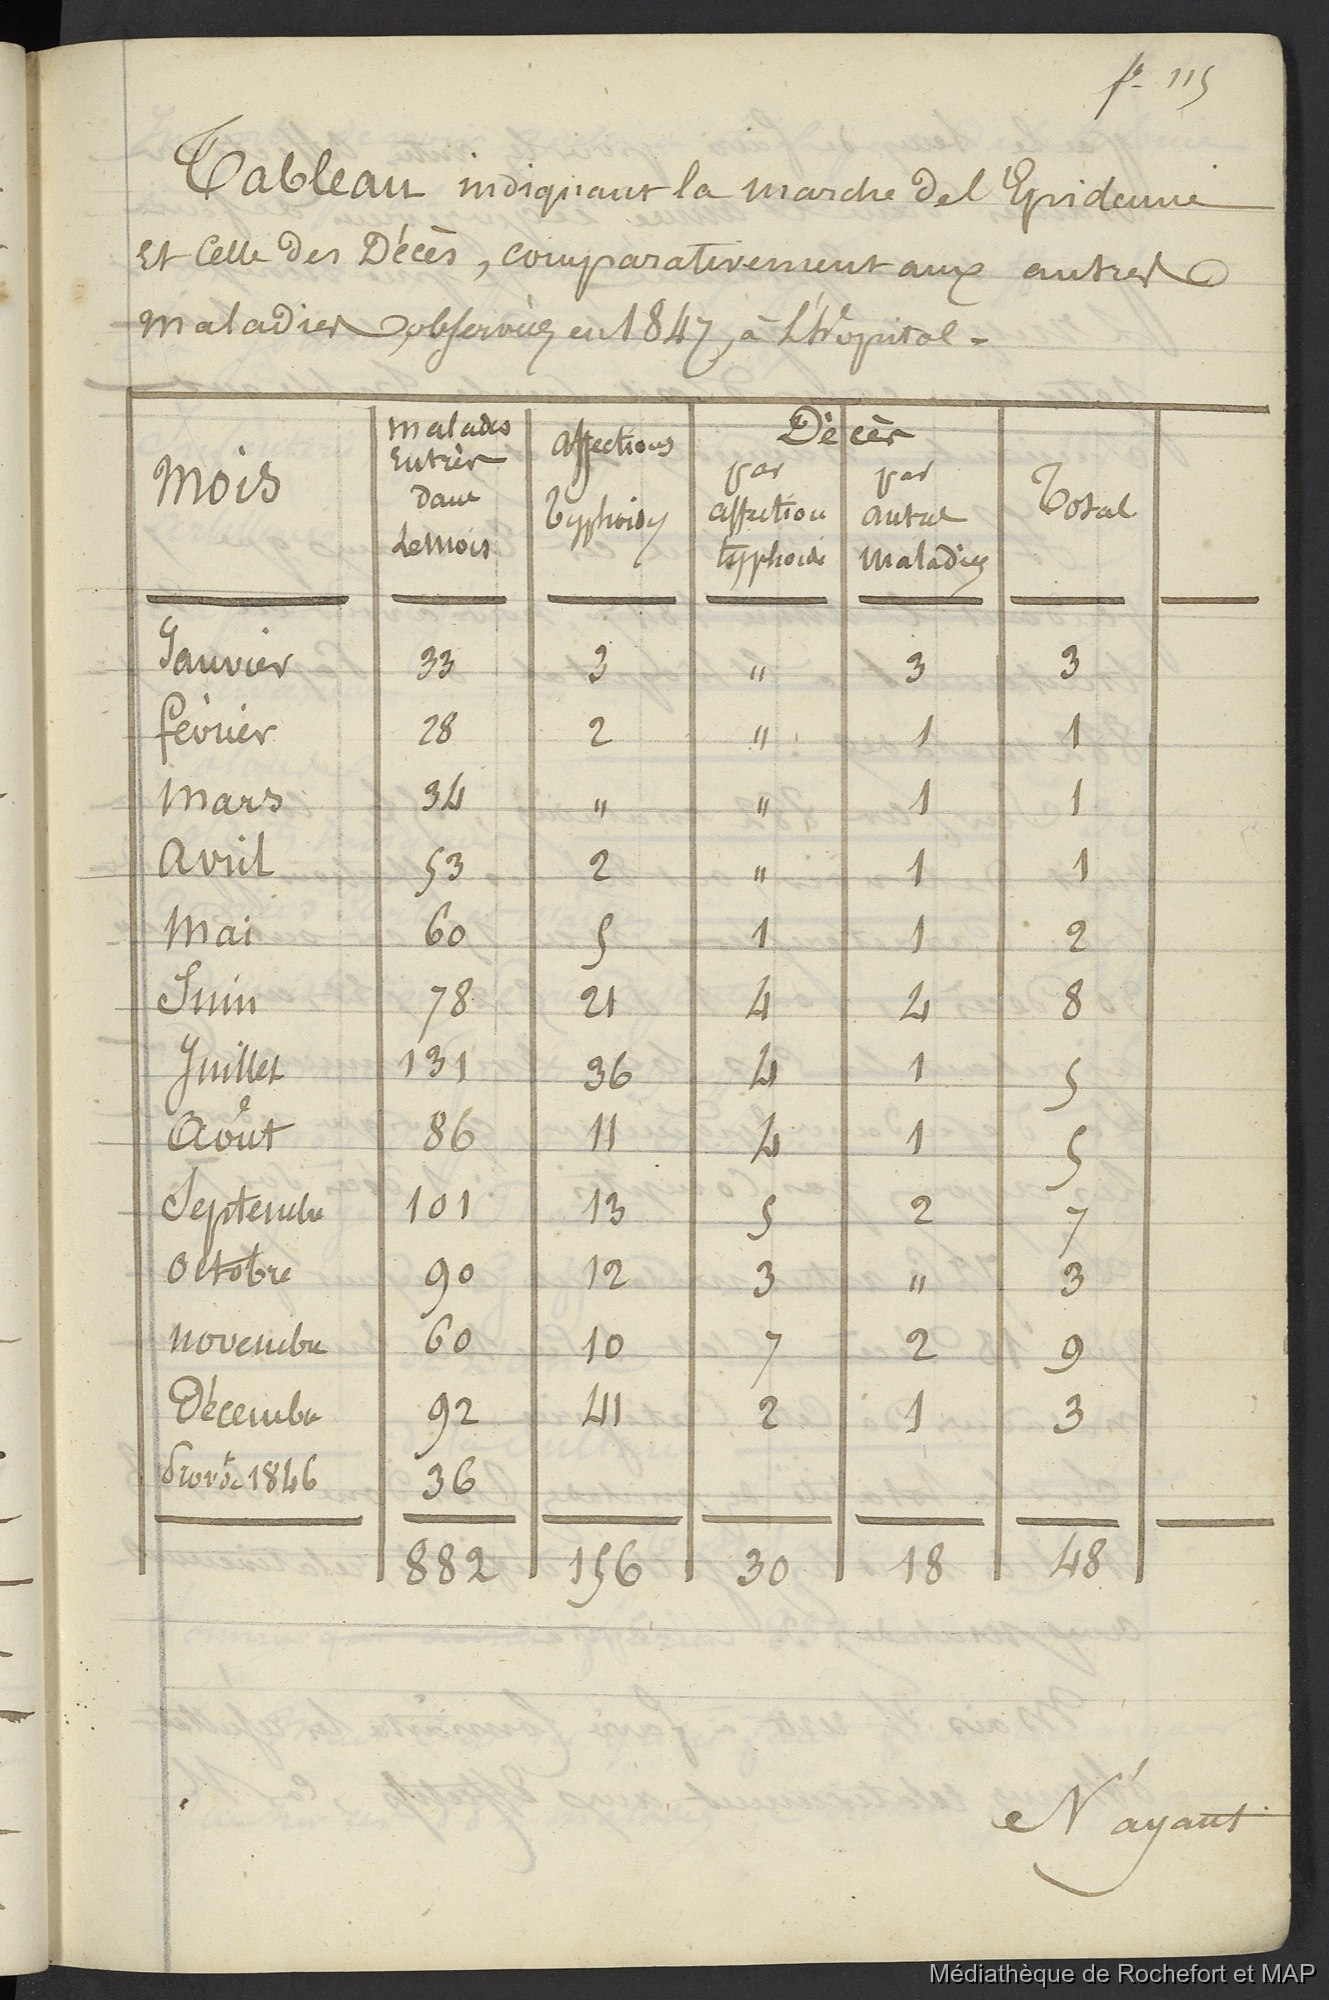 fo 115
Tableau indiquant la marche de l'Epidemie
et celle des Décès, comparativement aux autres
maladies observées en 1847, à l'hôpital.
Mois | malades Entrés dans le Mois | affections typhoides | Décès par affection typhoide | par autres maladies | Total
Janvier 33 3 " 3 3
février 28 2 " 1 1
mars 34 " " 1 1
avril 53 2 " 1 1
mai 60 5 1 1 2
Juin 78 21 4 4 8
Juillet 131 36 4 1 5
Août 86 11 4 1 5
Septembre 101 13 5 2 7
octobre 90 12 3 " 3
novembre 60 10 7 2 9
Décembre 92 41 2 1 3
1846 36
882 156 30 18 48
N'ayant
Médiathèque de Rochefort et MAP